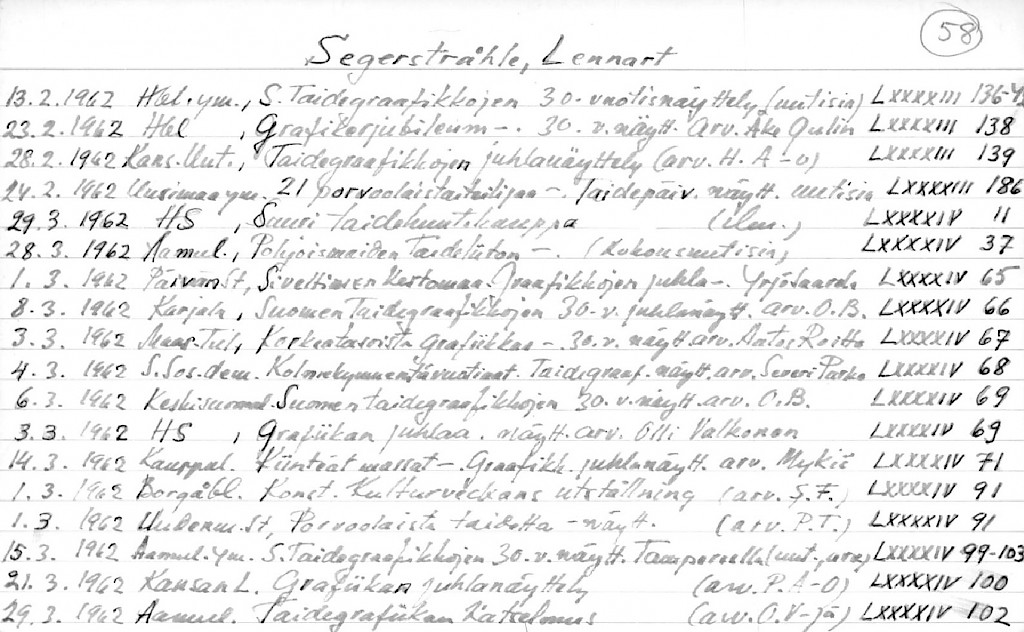 58
Segerstråhle, Lennart
13.2.1962 Hbl. ym., S. Taidegraafikkojen 30-vuotisnäyttely (uutisia) LXXXXIII 136-
23.2.1962 Hbl , Grafikerjubileum -. 30. v. näytt. Arv. Åke Gulin LXXXXIII 138
28.2.1962 Kans. Uut., Taidegraafikkojen juhlanäyttely (arv. H. A-o) LXXXXIII 139
24.2.1962 Uusimaa ym. 21 porvoolaistaiteilijaa -. Taidepäiv. näytt. uutisia LXXXXIII 186
29.3.1962 HS , Suuri taidehuutokauppa (ilm.) LXXXXIV 11
28.3.1962 Aamul., Pohjoismaiden Taideliiton -. (kokousuutisia) LXXXXIV 37
1.3.1962 Päivän St, Siveltimen kertomaa. Graafikkojen juhla-. Yrjö Saarela LXXXXIV 65
8.3.1962 Karjala, Suomen Taidegraafikkojen 30-v. juhlanäytt. arv. O.B. LXXXXIV 66
3.3.1962 Maas. Tul, Korkeatasoista grafiikkaa -. 30-v. näytt. arv. LXXXXIV 67
4.3.1962 S. Sos. dem. Kolmekymmentävuotiaat. Taidegraaf. näytt. arv. LXXXXIV 68
6.3.1962 Keskisuomal. Suomen taidegraafikkojen 30. v. näytt. arv. O.B. LXXXXIV 69
3.3.1962 HS , Grafiikan juhlaa. näytt. arv. Olli Valkonen LXXXXIV 69
14.3.1962 Kauppal. Kiinteät massat -. Graafikk. juhlanäytt. arv. LXXXXIV 71
1.3.1962 Borgåbl. Konst. Kulturveckans utställning (arv. S.F.) LXXXXIV 91
1.3.1962 Uudenm. St, Porvoolaista taidetta -näytt. (arv. P.T.) LXXXXIV 91
15.3.1962 Aamul. ym. S. Taidegraafikkojen 30. v. näytt. Tampereella LXXXXIV 99-103
21.3.1962 Kansan L. Grafiikan juhlanäyttely (arv. P. A-O) LXXXXIV 100
29.3.1962 Aamul. Taidegrafiikan katselmus (arv. O. V-jä) LXXXXIV 102